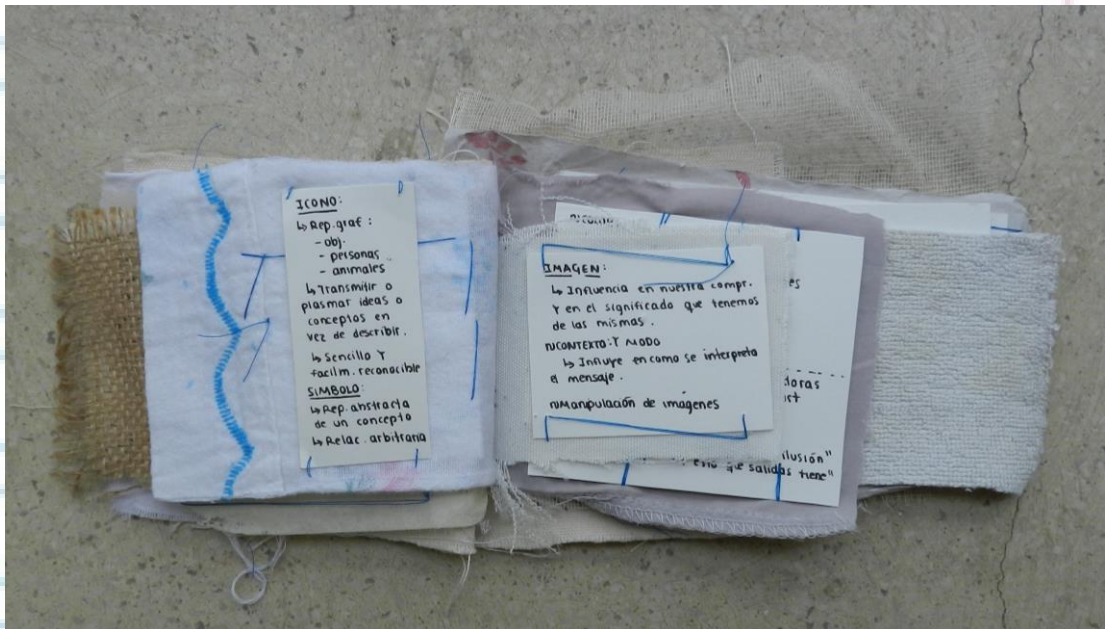 ICONO:
↳ Rep. graf:
- obj.
- personas
- animales
↳ Transmitir o
plasmar ideas o
conceptos en
vez de describir.
↳ Sencillo Y
facilm. reconocible
SIMBOLO:
↳ Rep. abstracta
de un concepto
↳ Relac. arbitraria
IMAGEN:
↳ Influencia en nuestra compr.
Y en el significado que tenemos
de las mismas.
CONTEXTO: Y MODO
↳ Influye en como se interpreta
el mensaje.
Manipulación de imágenes
es
doras
ilusión"
que salidas tiene"